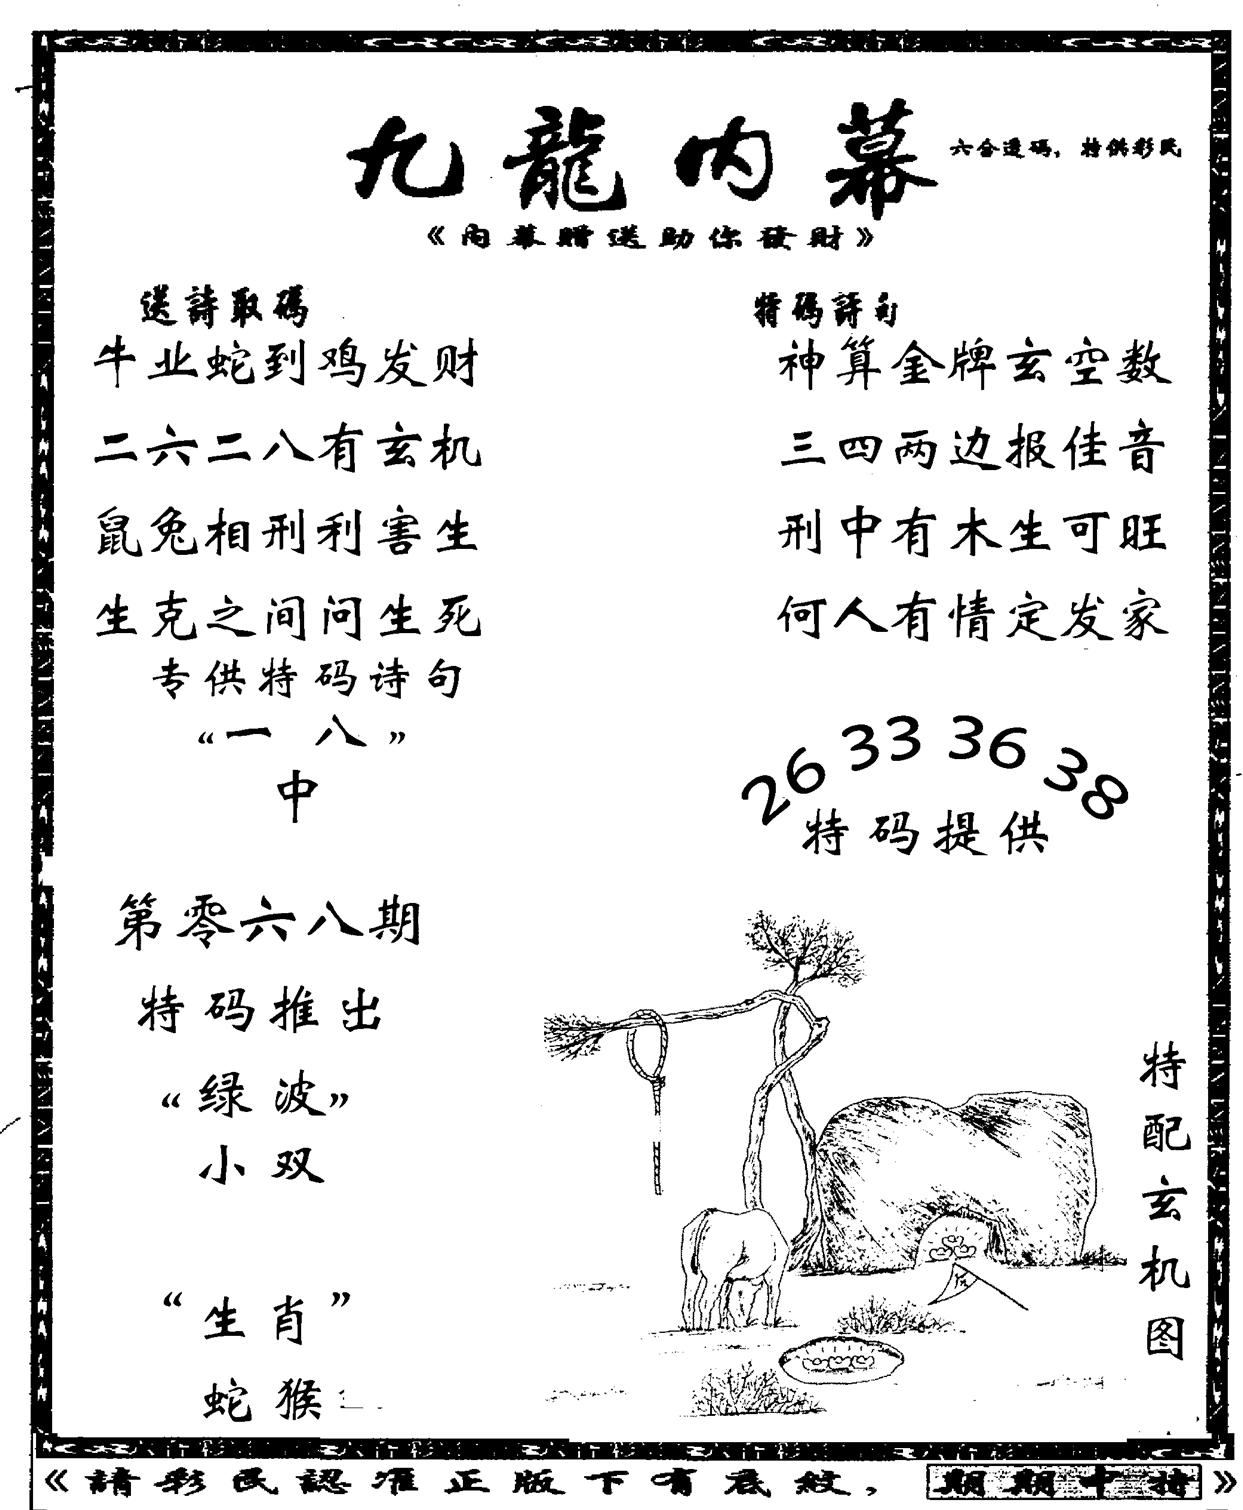 九龍内幕
六合透码，特供彩民
《内幕赠送助你發財》
送詩取碼
牛业蛇到鸡发财
二六二八有玄机
鼠兔相刑利害生
生克之间问生死
专供特码诗句
“一 八”
中
特碼詩句
神算金牌玄空数
三四两边报佳音
刑中有木生可旺
何人有情定发家
26 33 36 38
特码提供
第零六八期
特码推出
“绿波”
小双
“生肖”
蛇猴
特配玄机图
《請彩民認准正版下有底紋，期期中特》